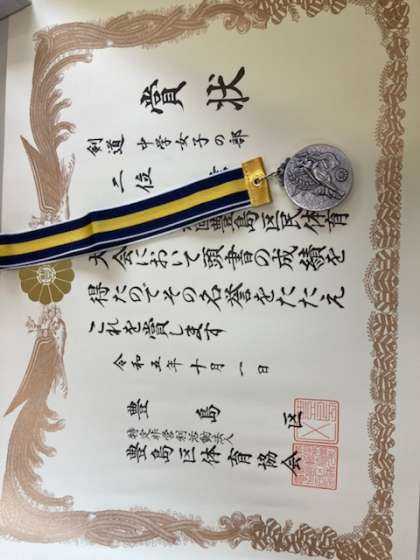 賞状
剣道 中学女子の部
二位
回豊島区民体育
大会において頭書の成績を
得たのでその名誉をたたえ
これを賞します
令和五年十月一日
豊島区
特定非営利活動法人
豊島区体育協会